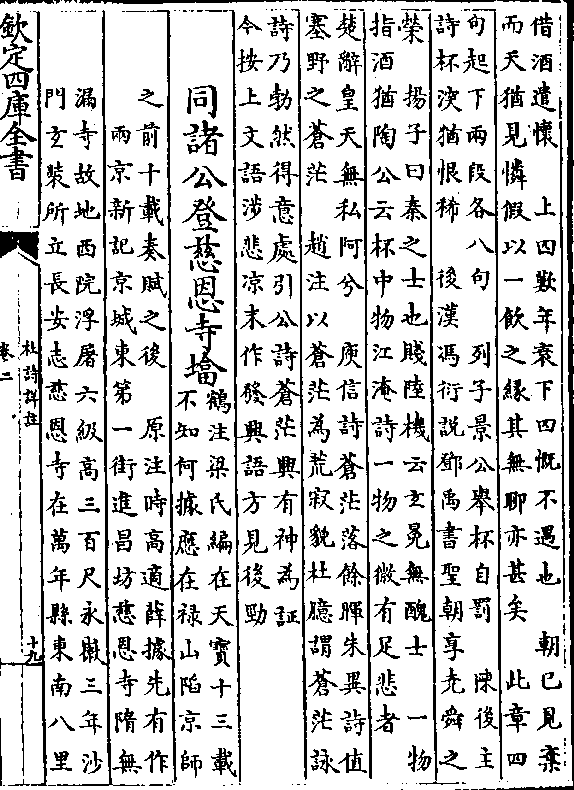 借酒遣懷　上四歎年衰下四慨不遇也　朝已見棄
而天猶見憐假以一飲之緣其無聊亦甚矣　此章四
句起下兩段各八句　列子景公舉杯自罰　陳後主
詩杯湥猶恨稀　後漢馮衍說鄧禹書聖朝享堯舜之
榮　揚子曰秦之士也賤陸機云玄冕無醜士　一物
指酒猶陶公云杯中物江淹詩一物之微有足悲者
楚辭皇天無私阿兮　庾信詩蒼茫落餘暉朱異詩值
塞野之蒼茫　趙注以蒼茫為荒寂貌杜臆謂蒼茫詠
詩乃勃然得意處引公詩蒼茫興有神為証
今按上文語涉悲凉末作發興語方見後勁
同諸公登慈恩寺塔
鶴注梁氏編在天寳十三載
不知何據應在禄山陷京師
之前十載奏賦之後　原注時高適薛據先有作
兩京新記京城東第一街進昌坊慈恩寺隋無
漏寺故地西院浮屠六級高三百尺永徽三年沙
門玄奘所立長安志慈恩寺在萬年縣東南八里
欽定四庫全書
杜詩詳註
卷二
十九